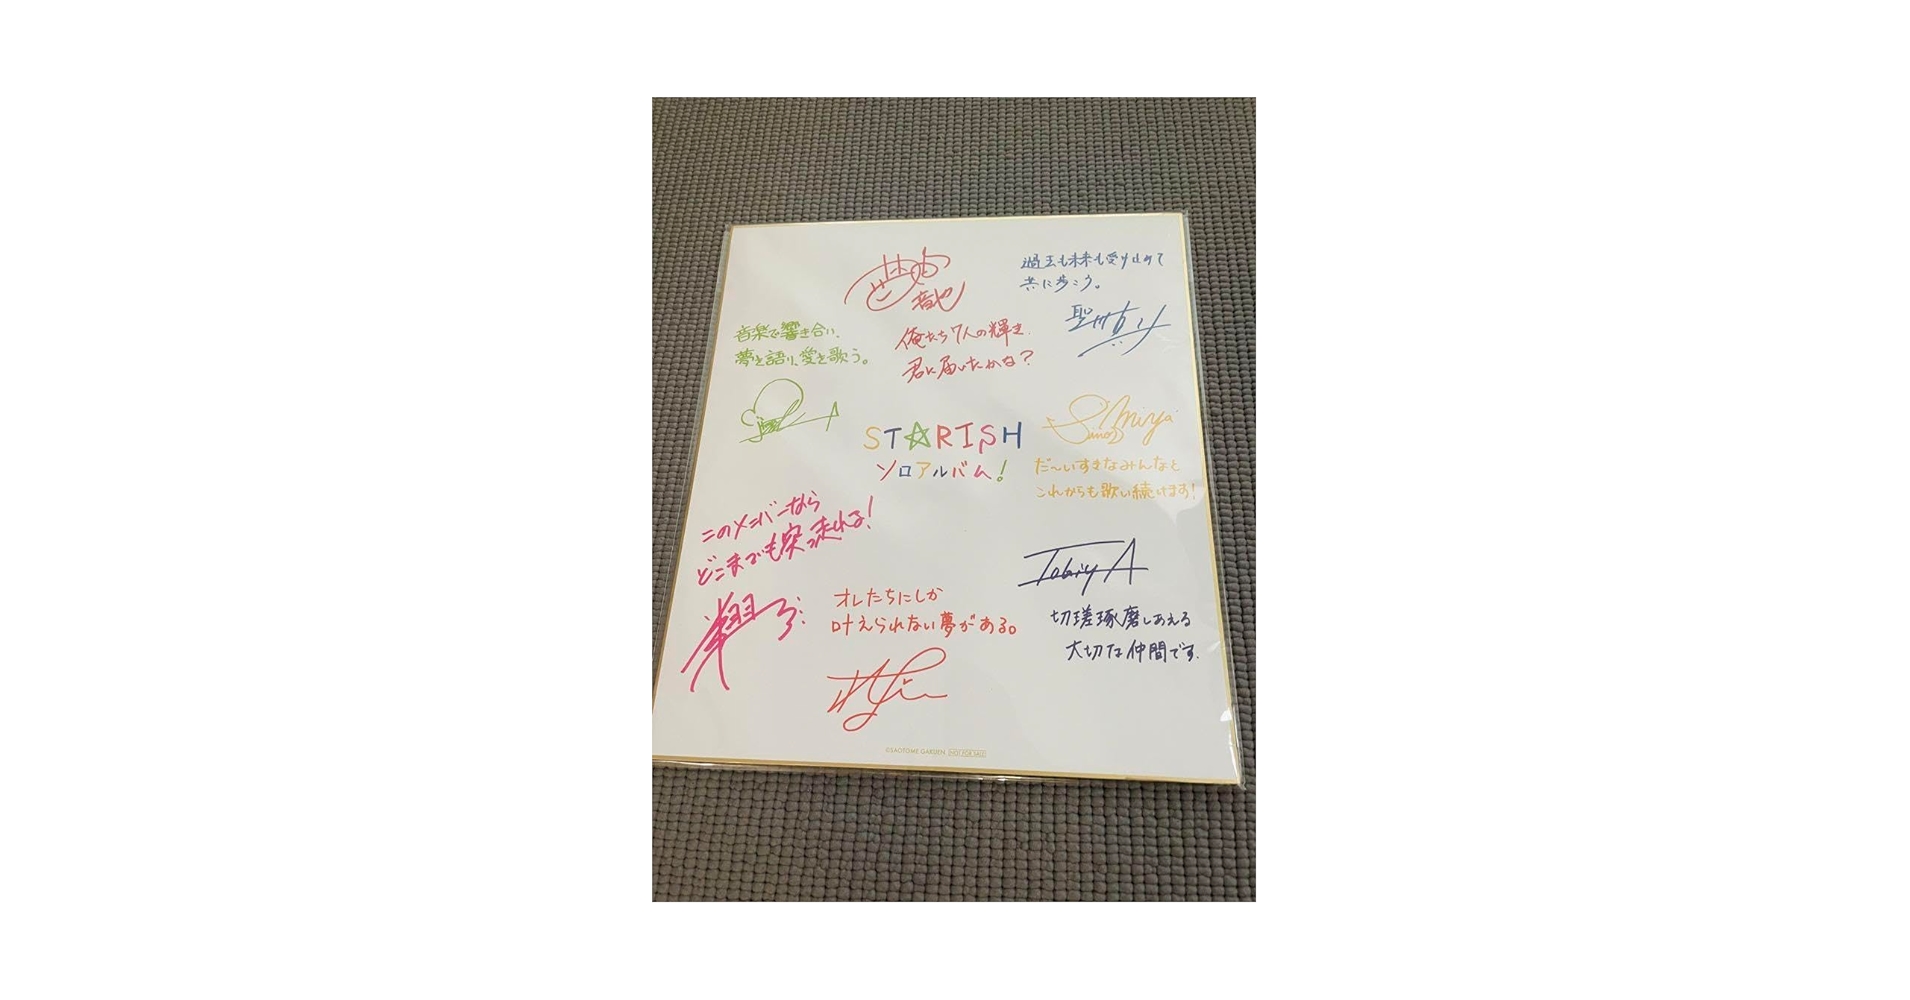 音也
俺たち7人の輝き、
君に届いたかな?
過去も未来も受け止めて
共に歩こう。
聖川
音楽で響き合い、
夢を語り、愛を歌う。
Sinomiya
だ〜いすきなみんなと
これからも歌い続けます!
ST☆RISH
ソロアルバム!
このメンバーなら
どこまでも突っ走れる!
翔
オレたちにしか
叶えられない夢がある。
切磋琢磨しあえる
大切な仲間です.
©SAOTOME GAKUEN NOT FOR SALE